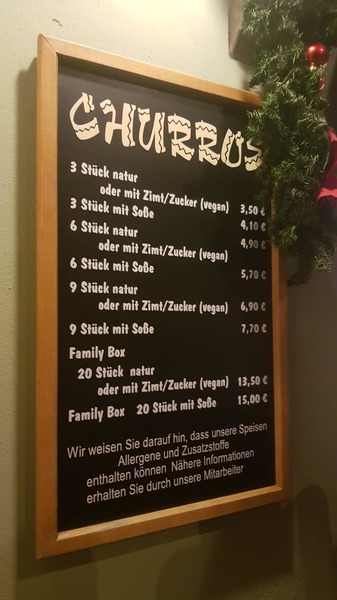 CHURROS
3 Stück natur
oder mit Zimt/Zucker (vegan) 3,50 €
3 Stück mit Soße 4,10 €
6 Stück natur
oder mit Zimt/Zucker (vegan) 4,90 €
6 Stück mit Soße 5,70 €
9 Stück natur
oder mit Zimt/Zucker (vegan) 6,90 €
9 Stück mit Soße 7,70 €
Family Box
20 Stück natur
oder mit Zimt/Zucker (vegan) 13,50 €
Family Box 20 Stück mit Soße 15,00 €
Wir weisen Sie darauf hin, dass unsere Speisen
Allergene und Zusatzstoffe
enthalten können Nähere Informationen
erhalten Sie durch unsere Mitarbeiter